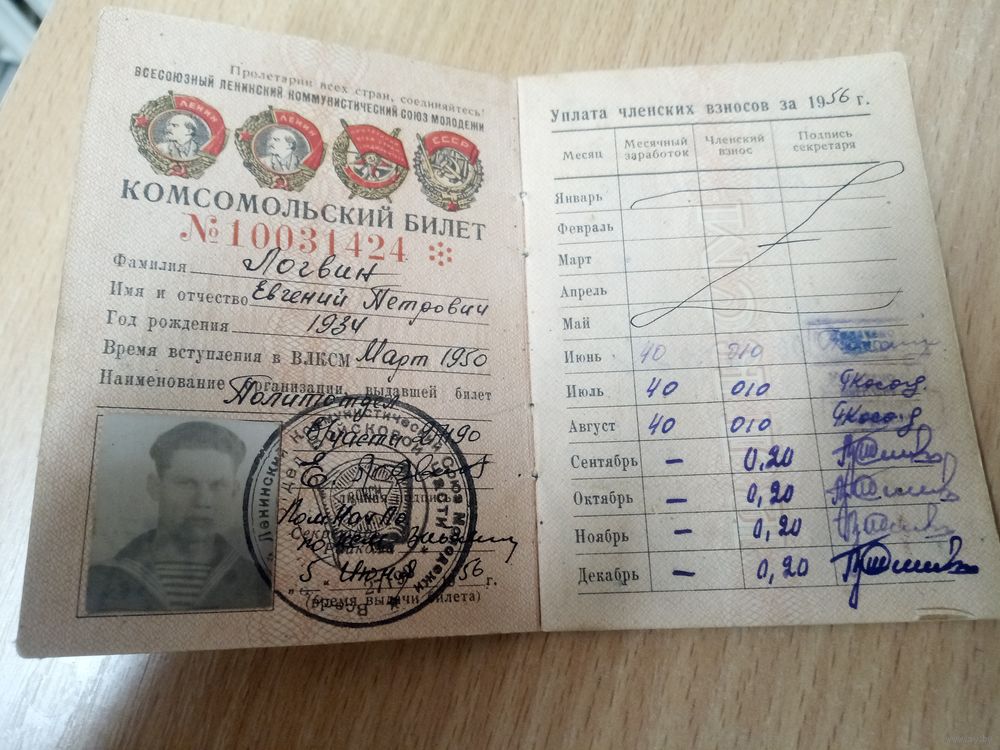 Пролетарии всех стран, соединяйтесь!
ВСЕСОЮЗНЫЙ ЛЕНИНСКИЙ КОММУНИСТИЧЕСКИЙ СОЮЗ МОЛОДЕЖИ
ЛЕНИН ЛЕНИН СССР
КОМСОМОЛЬСКИЙ БИЛЕТ
№ 10031424
Фамилия Логвин
Имя и отчество Евгений Петрович
Год рождения 1934
Время вступления в ВЛКСМ Март 1950
Наименование организации, выдавшей билет
Политотдел
личная подпись
5 Июня 1956 г.
(время выдачи билета)
Уплата членских взносов за 1956 г.
Месяц Месячный заработок Членский взнос Подпись секретаря
Январь
Февраль
Март
Апрель
Май
Июнь 40 010
Июль 40 010
Август 40 010
Сентябрь — 0,20
Октябрь — 0,20
Ноябрь — 0,20
Декабрь — 0,20